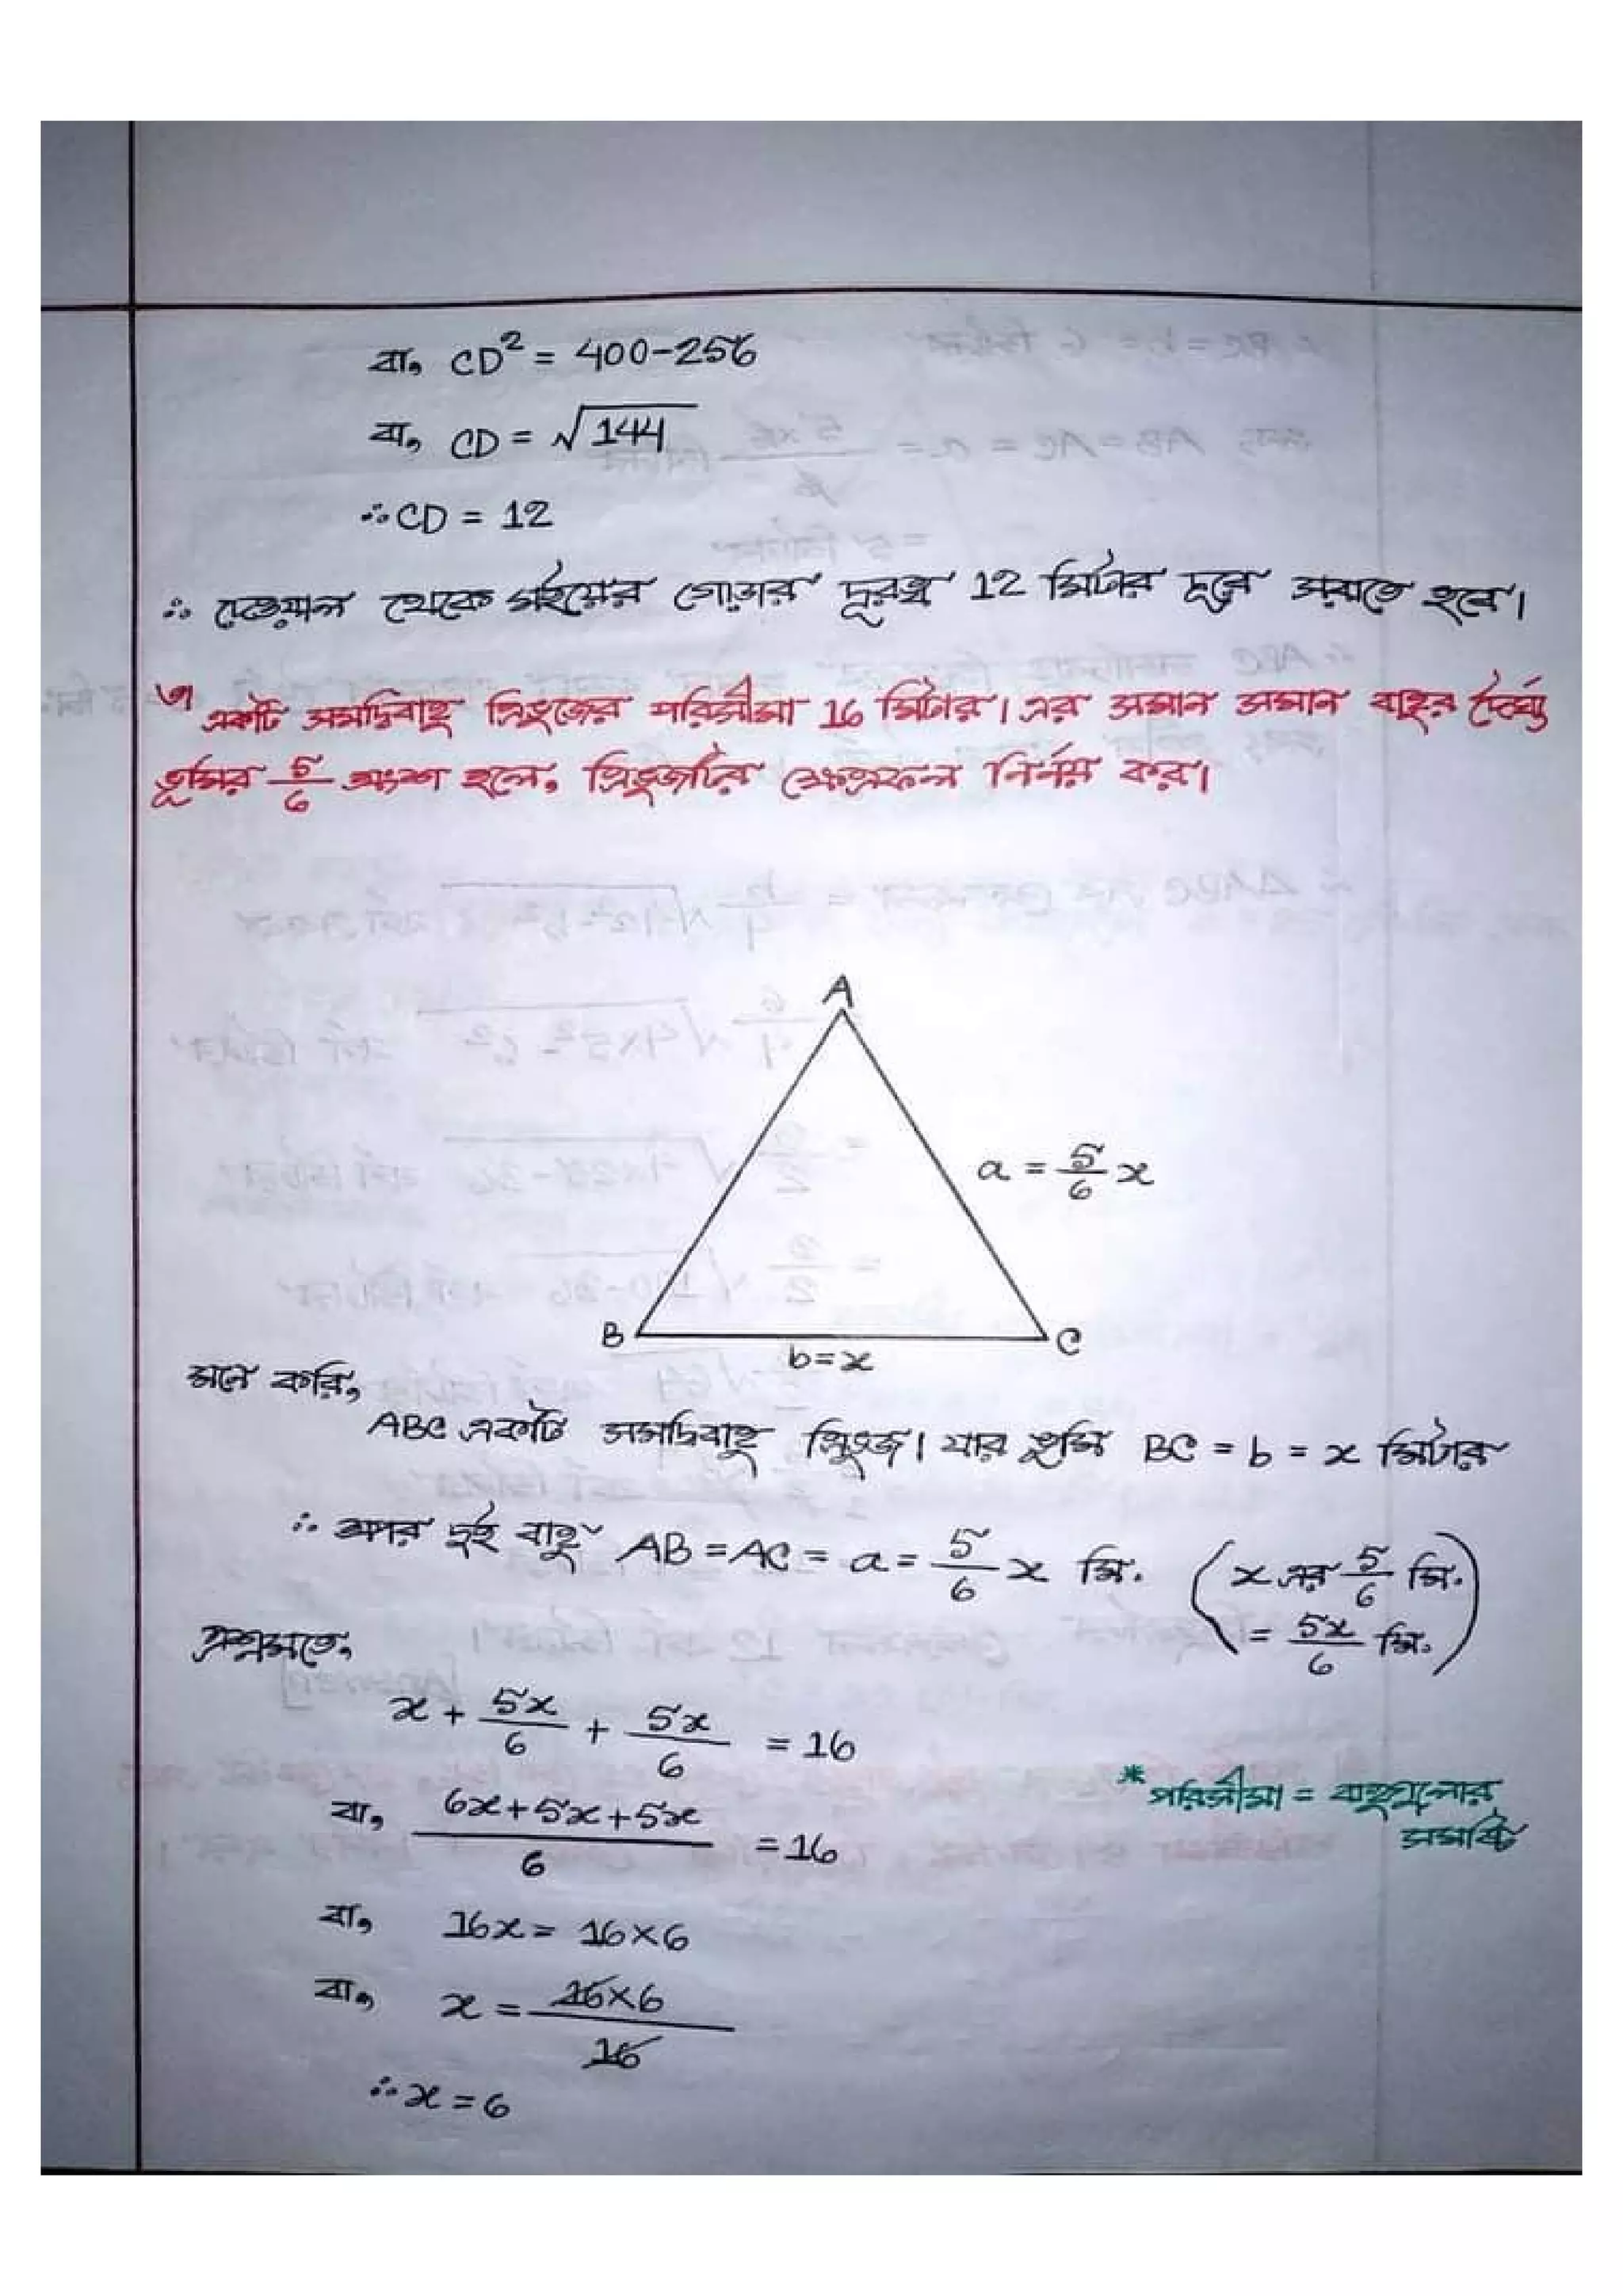 বা, CD² = 400-256
বা, CD = √144
∴ CD = 12
∴ দেওয়াল থেকে মইয়ের গোড়ার দূরত্ব 12 মিটার দূরে সরাতে হবে।
৩৷ একটি সমদ্বিবাহু ত্রিভুজের পরিসীমা 16 মিটার। এর সমান সমান বাহুর দৈর্ঘ্য
ভূমির 5/6 অংশ হলে, ত্রিভুজটির ক্ষেত্রফল নির্ণয় কর।
A
a = 5/6 x
B
C
b = x
মনে করি,
ABC একটি সমদ্বিবাহু ত্রিভুজ। যার ভূমি BC = b = x মিটার
∴ অপর দুই বাহু AB = AC = a = 5/6 x মি. (x এর 5/6 মি.
= 5x/6 মি.)
প্রশ্নমতে,
x + 5x/6 + 5x/6 = 16
* পরিসীমা = বাহুগুলোর
সমষ্টি
বা, 6x+5x+5x/6 = 16
বা, 16x = 16×6
বা, x = 16×6/16
∴ x = 6